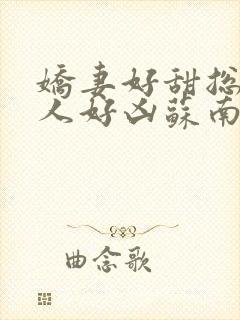 嬌妻好甜總
人好凶蘇南
曲念歌